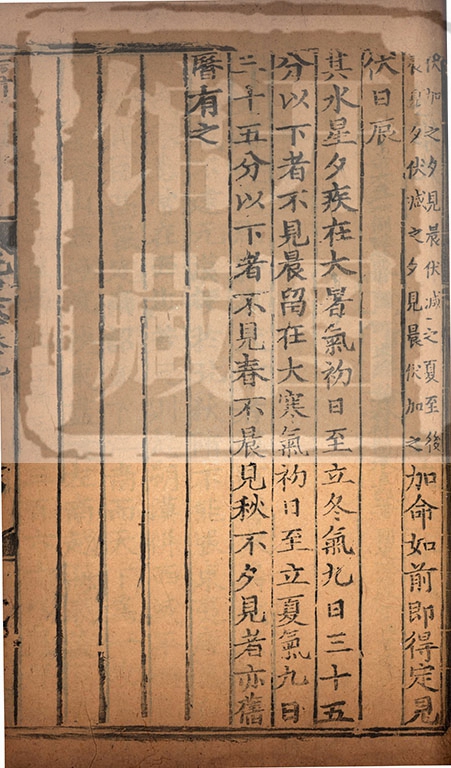 伏加之夕見晨伏減之夏至後
晨見夕伏減之夕見晨伏加之
加命如前即得定見
伏日辰
其水星夕疾在大暑氣初日至立冬氣九日三十五
分以下者不見晨留在大寒氣初日至立夏氣九日
三十五分以下者不見春不晨見秋不夕見者亦舊
曆有之
图
馆藏